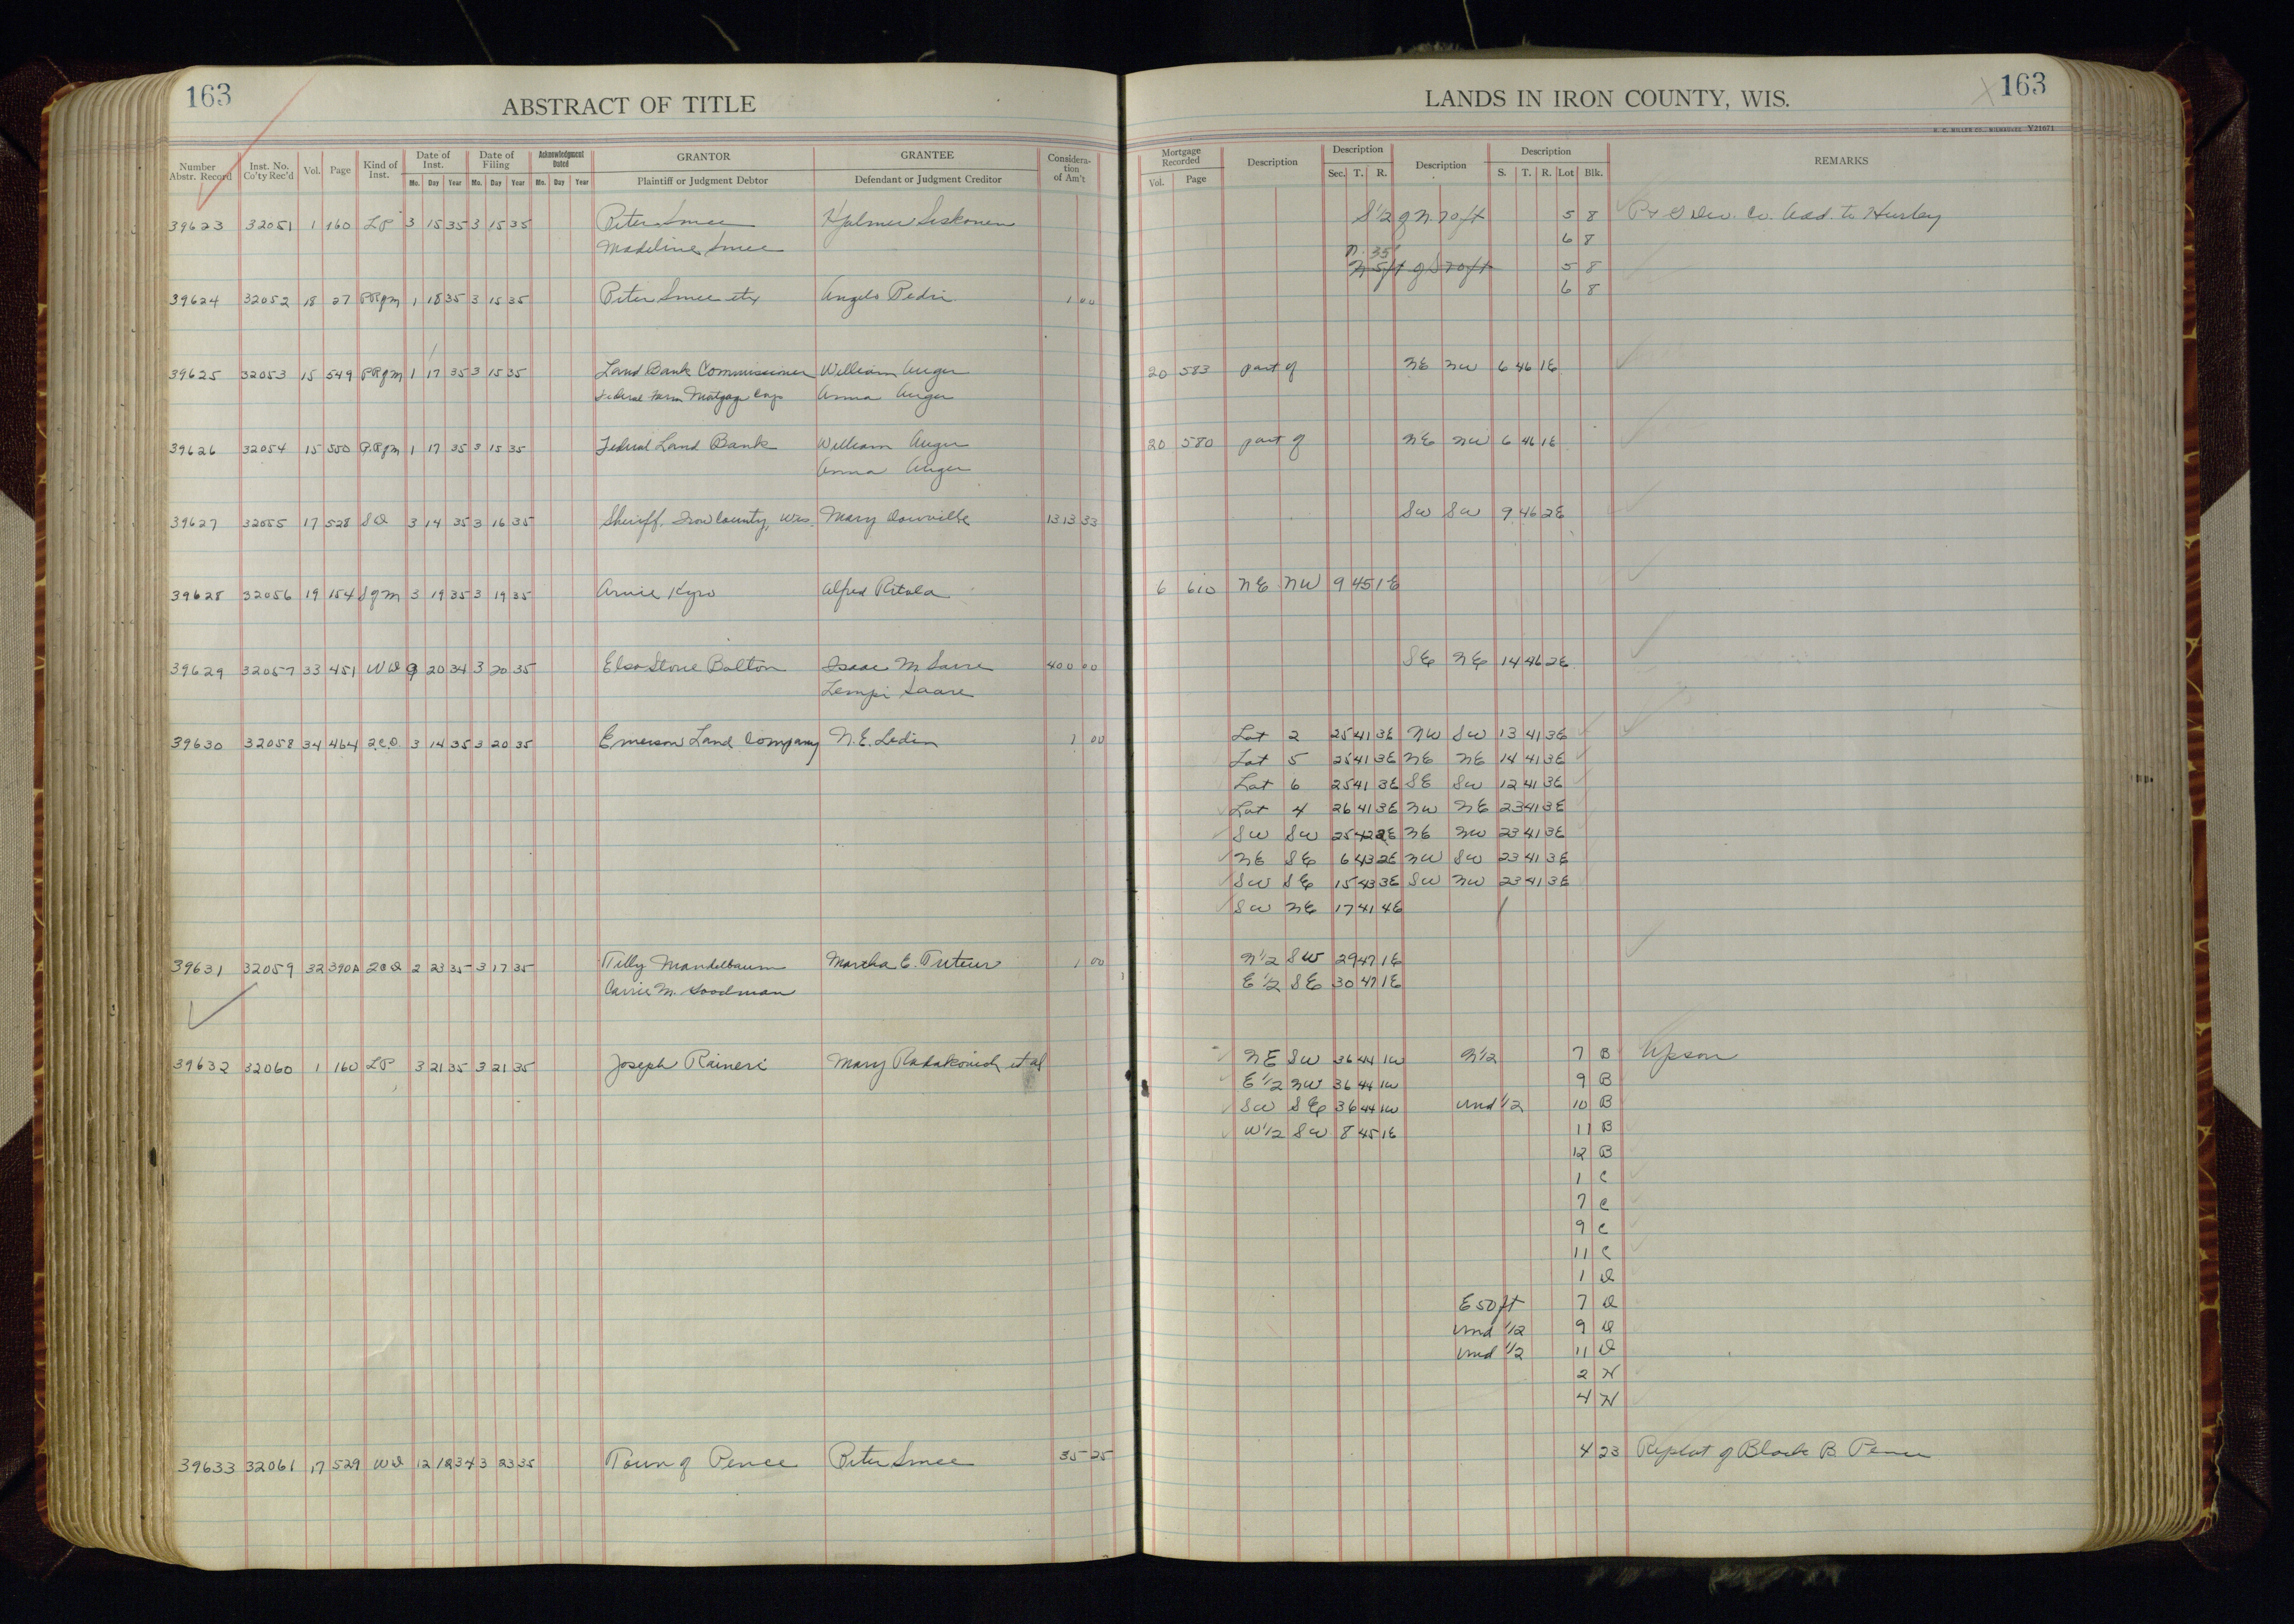 163
ABSTRACT OF TITLE
LANDS IN IRON COUNTY, WIS.
163
H. C. MILLER CO., MILWAUKEE Y21671
Number Abstr. Record Inst. No. Co'ty Rec'd Vol. Page Kind of Inst. Date of Inst. Mo. Day Year Date of Filing Mo. Day Year Acknowledgment Dated Mo. Day Year GRANTOR Plaintiff or Judgment Debtor GRANTEE Defendant or Judgment Creditor Considera-tion of Am't
Mortgage Recorded Vol. Page Description Description Sec. T. R. Description Description S. T. R. Lot Blk. REMARKS
39623 32051 1 160 LP 3 15 35 3 15 35 Peter Smee Hjalmer Siskonen S 1/2 of N. 70 ft 5 8 Co. Add. to Hurley
Madeline Smee 6 8
N. 35'
N 5 ft of S 70 ft 5 8
39624 32052 18 27 PRgm 1 18 35 3 15 35 Peter Smee etx Angelo Pedri 1 00 6 8
39625 32053 15 549 PRgm 1 17 35 3 15 35 Land Bank Commissioner William Auger 20 583 part of NE NW 6 46 1E
Federal Farm Mortgage Corp Anna Auger
39626 32054 15 550 P.Rgm 1 17 35 3 15 35 Federal Land Bank William Auger 20 580 part of NE NW 6 46 1E
Anna Auger
39627 32055 17 528 SD 3 14 35 3 16 35 Sheriff, Iron County, Wis. Mary 1313 33 SW SW 9 46 2E
39628 32056 19 154 Sgm 3 19 35 3 19 35 Arvie Kyro Alfred Ritola 6 610 NE NW 9 45 1E
39629 32057 33 451 WD 9 20 34 3 20 35 Elsa Stone Bolton Isaac M Saare 400 00 SE NE 14 46 2E
Lempi Saare
39630 32058 34 464 2.C.D. 3 14 35 3 20 35 Emerson Land Company N.E. Ledin 1 00 Lot 2 25 41 3E NW SW 13 41 3E
Lot 5 25 41 3E NE NE 14 41 3E
Lot 6 25 41 3E SE SW 12 41 3E
Lot 4 26 41 3E NW NE 23 41 3E
SW SW 25 42 2E NE NW 23 41 3E
NE SE 6 43 2E NW SW 23 41 3E
SW SE 15 43 3E SW NW 23 41 3E
SW NE 17 41 4E
39631 32059 32 390A 2CD 2 23 35 3 17 35 Tilly Mandelbaum Martha E. Tuteur 1 00 N 1/2 SW 29 47 1E
Carrie M. Goodman E 1/2 SE 30 47 1E
39632 32060 1 160 LP 3 21 35 3 21 35 Joseph Raineri Mary Radakovich et al NE SW 36 44 1W N 1/2 7 B Upson
E 1/2 NW 36 44 1W 9 B
SW SE 36 44 1W Und 1/2 10 B
W 1/2 SW 8 45 1E 11 B
12 B
1 C
7 C
9 C
11 C
1 D
E 50 ft 7 D
Und 1/2 9 D
Und 1/2 11 D
2 N
4 N
39633 32061 17 529 WD 12 18 34 3 23 35 Town of Pence Peter Smee 35 25 4 23 Replat of Block B Pence